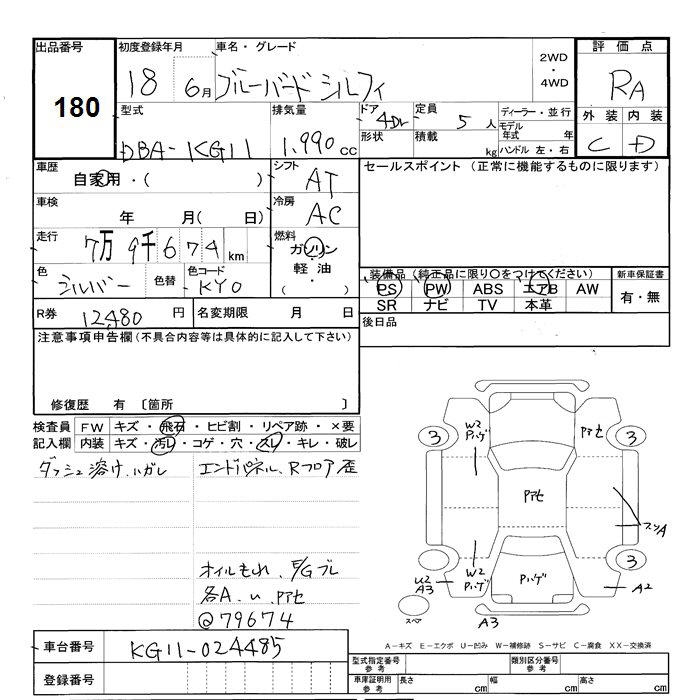 出品番号
180
初度登録年月
18 6月
車名・グレード
ブルーバード シルフィ
2WD
・
4WD
評価点
RA
外装 内装
C D
型式
DBA-KG11
排気量
1,990 cc
ドア
4Dr
形状
定員
5 人
積載
kg
ディーラー・並行
モデル年式 年
ハンドル 左・右
車歴
自家用・( )
シフト
AT
セールスポイント (正常に機能するものに限ります)
車検
年 月( 日)
冷房
AC
走行
7万9千674 km
燃料
ガソリン
・
軽油
・
( )
色
シルバー
色替
色コード
KY0
装備品 (純正品に限り○をつけてください)
PS PW ABS エアB AW
SR ナビ TV 本革
新車保証書
有・無
R券 12,480 円
名変期限 月 日
後日品
注意事項申告欄(不具合内容等は具体的に記入して下さい)
修復歴 有 〔箇所 〕
検査員
記入欄
FW キズ・飛石・ヒビ割・リペア跡・×要
内装 キズ・汚レ・コゲ・穴・スレ・キレ・破レ
ダッシュ溶け、ハガレ
エンドパネル、Rフロア歪
オイルもれ、E/Gブレ
各A、U、Pアセ
@79674
3
W2
Pハゲ
Pアセ
3
Pアセ
U2
A3
W2
Pハゲ
Pハゲ
3
A2
スペア
A3
A-キズ E-エクボ U-凹み W-補修跡 S-サビ C-腐食 XX-交換済
車台番号
KG11-024485
登録番号
型式指定番号
参考
類別区分番号
参考
車庫証明用
参考
長さ cm
幅 cm
高さ cm